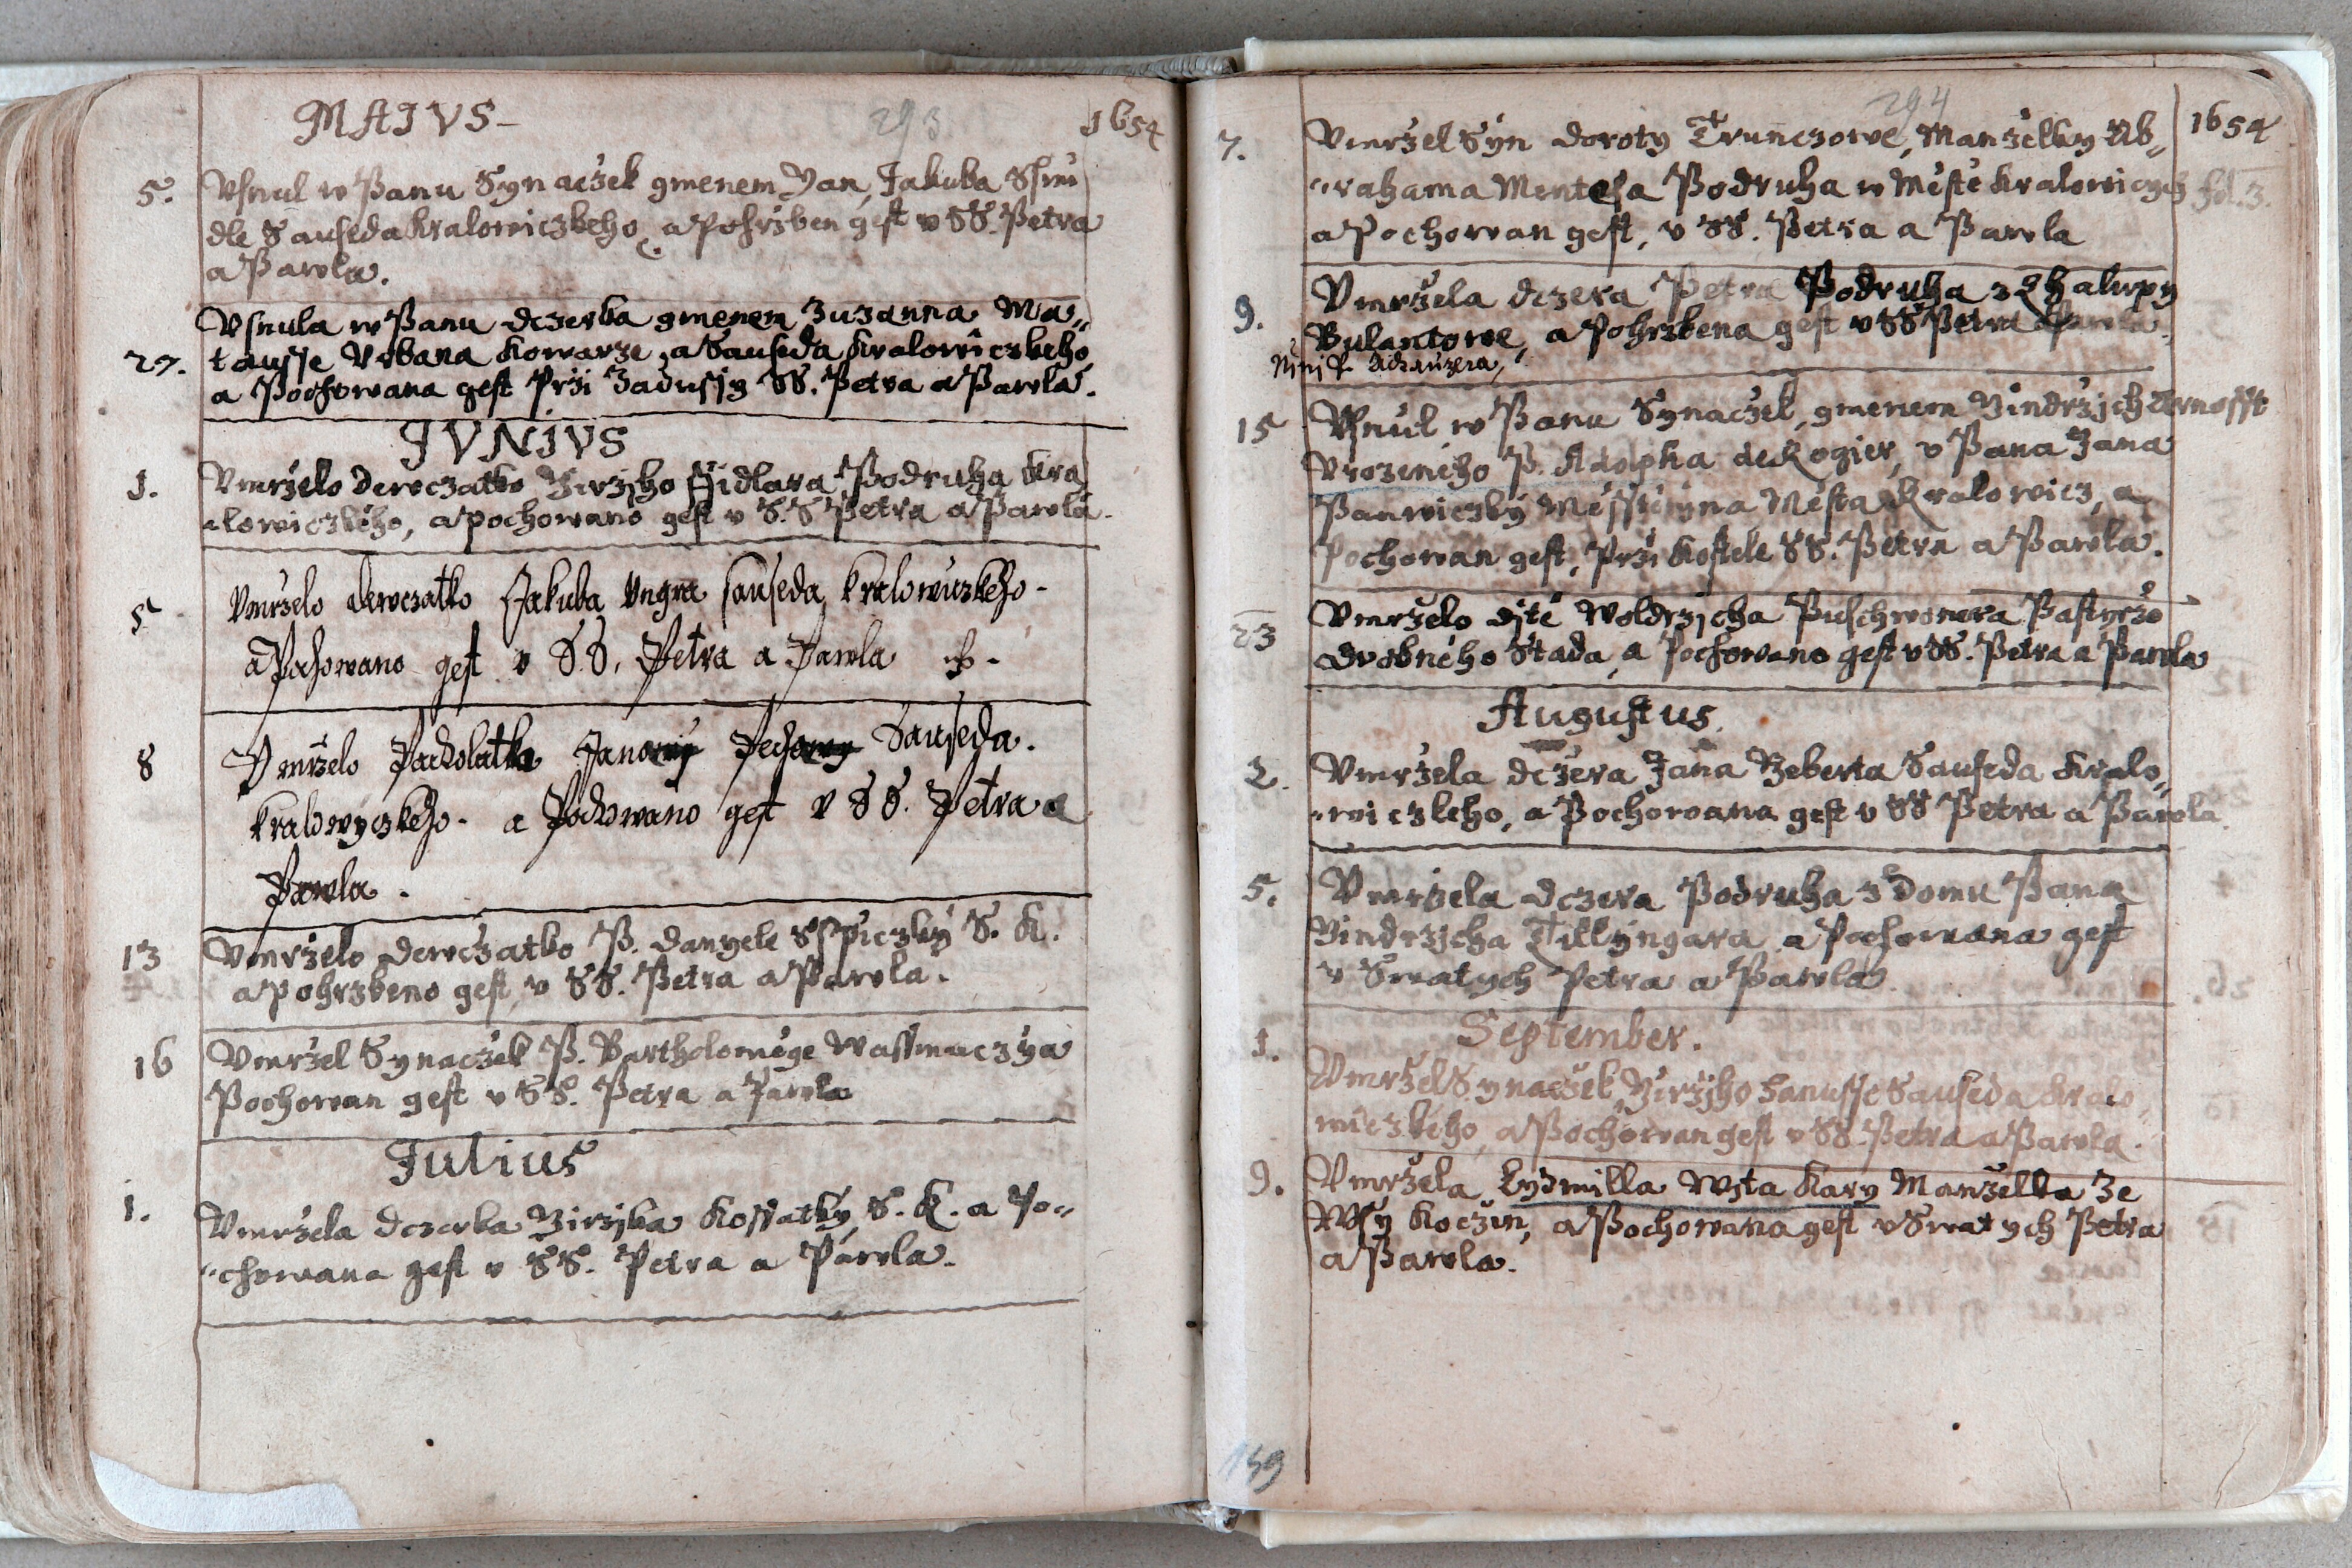 MAIVS-
293
1654
5. Vsnul w Panu Synaczek gmenem Jan, Jakuba Ssin
dle Sauseda Kralowiczkeho, a pohrzben gest v SS. Petra
a Pawla.
Vsnula w Panu dczerka gmenem Zuzanna Ma„
27. tausse Vrbana Kowarze, a Sauseda Kralowiczkeho
a Pochowana gest Przi Zadussy SS. Petra a Pawla.
JVNIVS
1. Vmrzelo dewczatko Jirzjho Ssidlara Podruha Kra
„lowiczkeho, a pochowano gest v S.S Petra a Pawla.
5 Vmrzelo dewczatko Jakuba Vngra sauseda kralowiczkeho-
a Pochowano gest v S.S. Petra a Pawla
8 Vmrzelo Pacholatko Sauseda.
kralowyczkeho- a Pochowano gest v S S. Petra a
Pawla.
13 Vmrzelo dewczatko P. danyele Sspiczky S. K.
a pohrzbeno gest v SS. Petra a Pawla.
16 Vmrzel Synaczek P. Bartholomege Wassmaczya
Pochowan gest v SS. Petra a Pawla
Julius
1. Vmrzela dczerka Jirzjka Kossatky, S. K. a Po„
„chowana gest v SS. Petra a Pawla.
294
1654
7. Vmrzel Syn doroty Trunczowe, Manzelky Ab„
„rahama Mentesa Podruha w Meste Kralowiczych
a Pochowan gest, v SS. Petra a Pawla
9. Vmrzela dczera Petra Podruha z Chalupy
Bulantowe, a pohrzbena gest v SS Petra a Pawla.
15 Vsnul w Panu Synaczek, gmenem Jindrzjch Arnosst
Vrozeneho P. Adolpha de Rogier, v Pana Jana
Panwiczky Messtienjna Mesta Kralowicz, a
Pochowan gest, Przi Kostele SS. Petra a Pawla.
23 Vmrzelo djte Woldrzjcha Puschwonera Pastyrze
drobneho Stada, a Pochowano gest v SS. Petra a Pawla
Augustus.
2. Vmrzela dczera Jana Zeberta Sauseda Kralo„
„wiczkeho, a Pochowana gest v SS Petra a Pawla.
5. Vmrzela dczera Podruha z domu Pana
Jindrzjcha Tillyngara a Pochowana gest
v Swatych Petra a Pawla
September.
1. Vmrzel Synaczek, Jirzjho Hanusse Sauseda Kralo„
wiczkeho, a Pochowan gest v SS. Petra a Pawla.
9. Vmrzela Lydmilla Wjta Kary Manzelka ze
Wsy Koczin, a Pochowana gest v Swatych Petra
a Pawla.
159